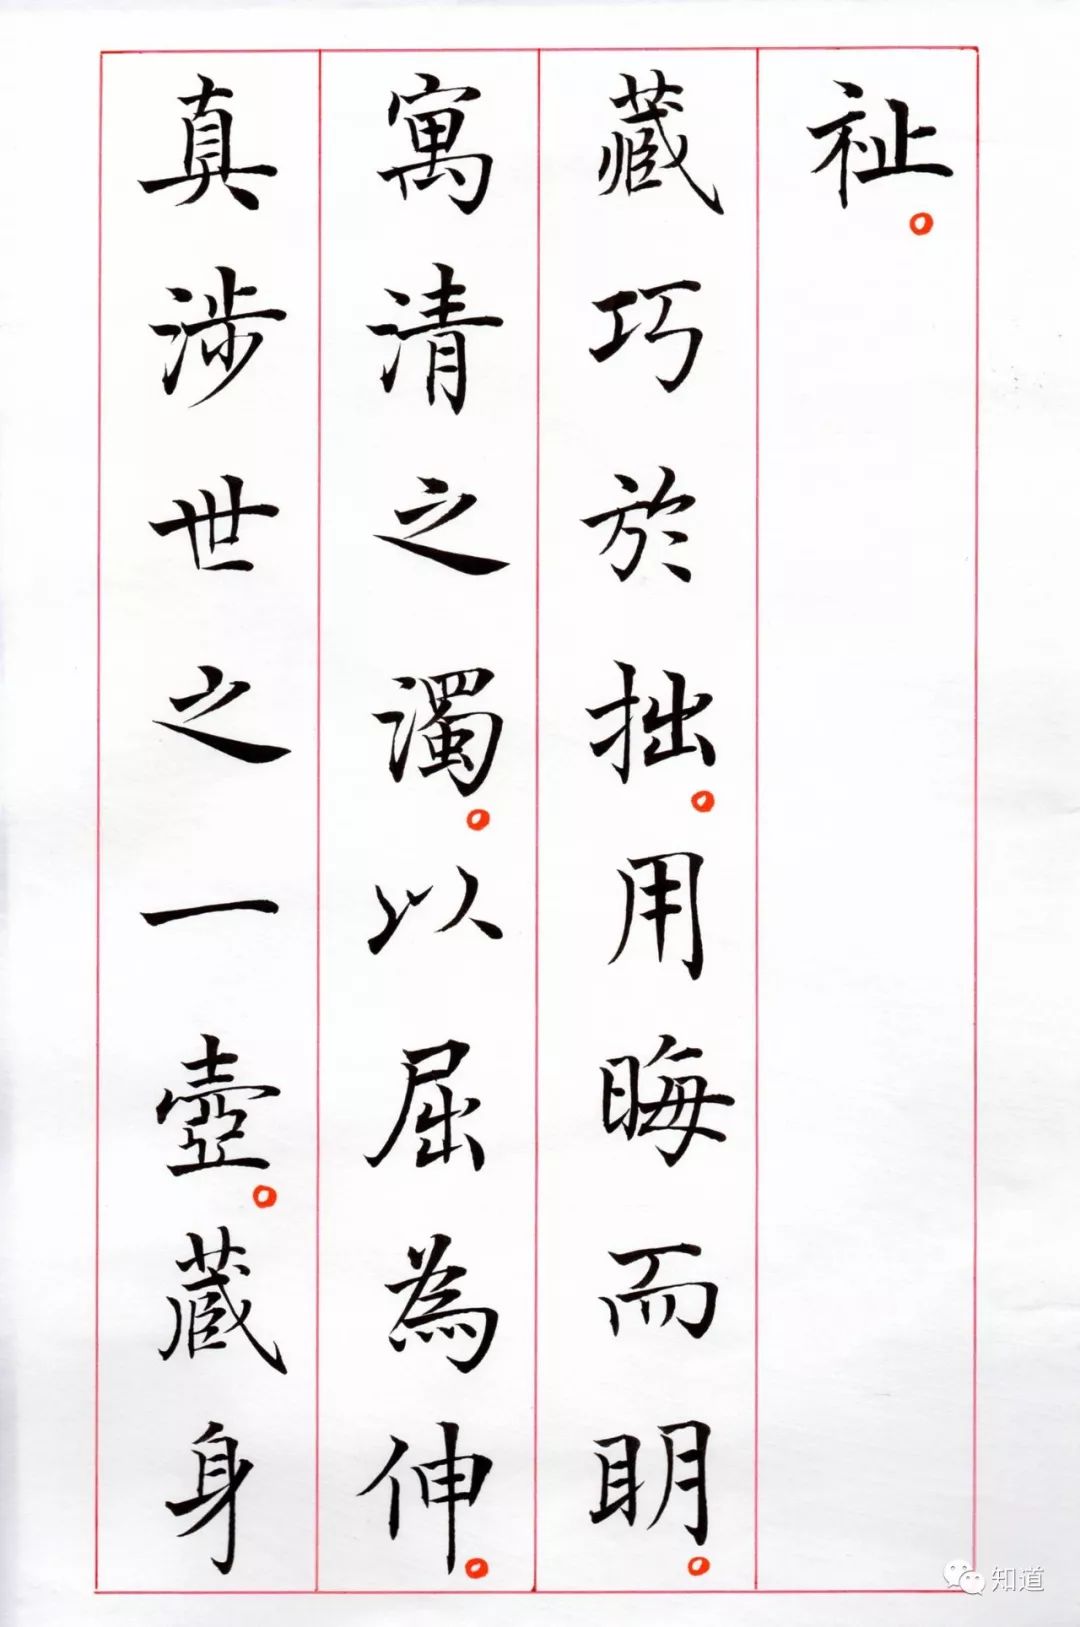 祉。
藏巧於拙。用晦而明。
寓清之濁。以屈為伸。
真涉世之一壺。藏身
知道